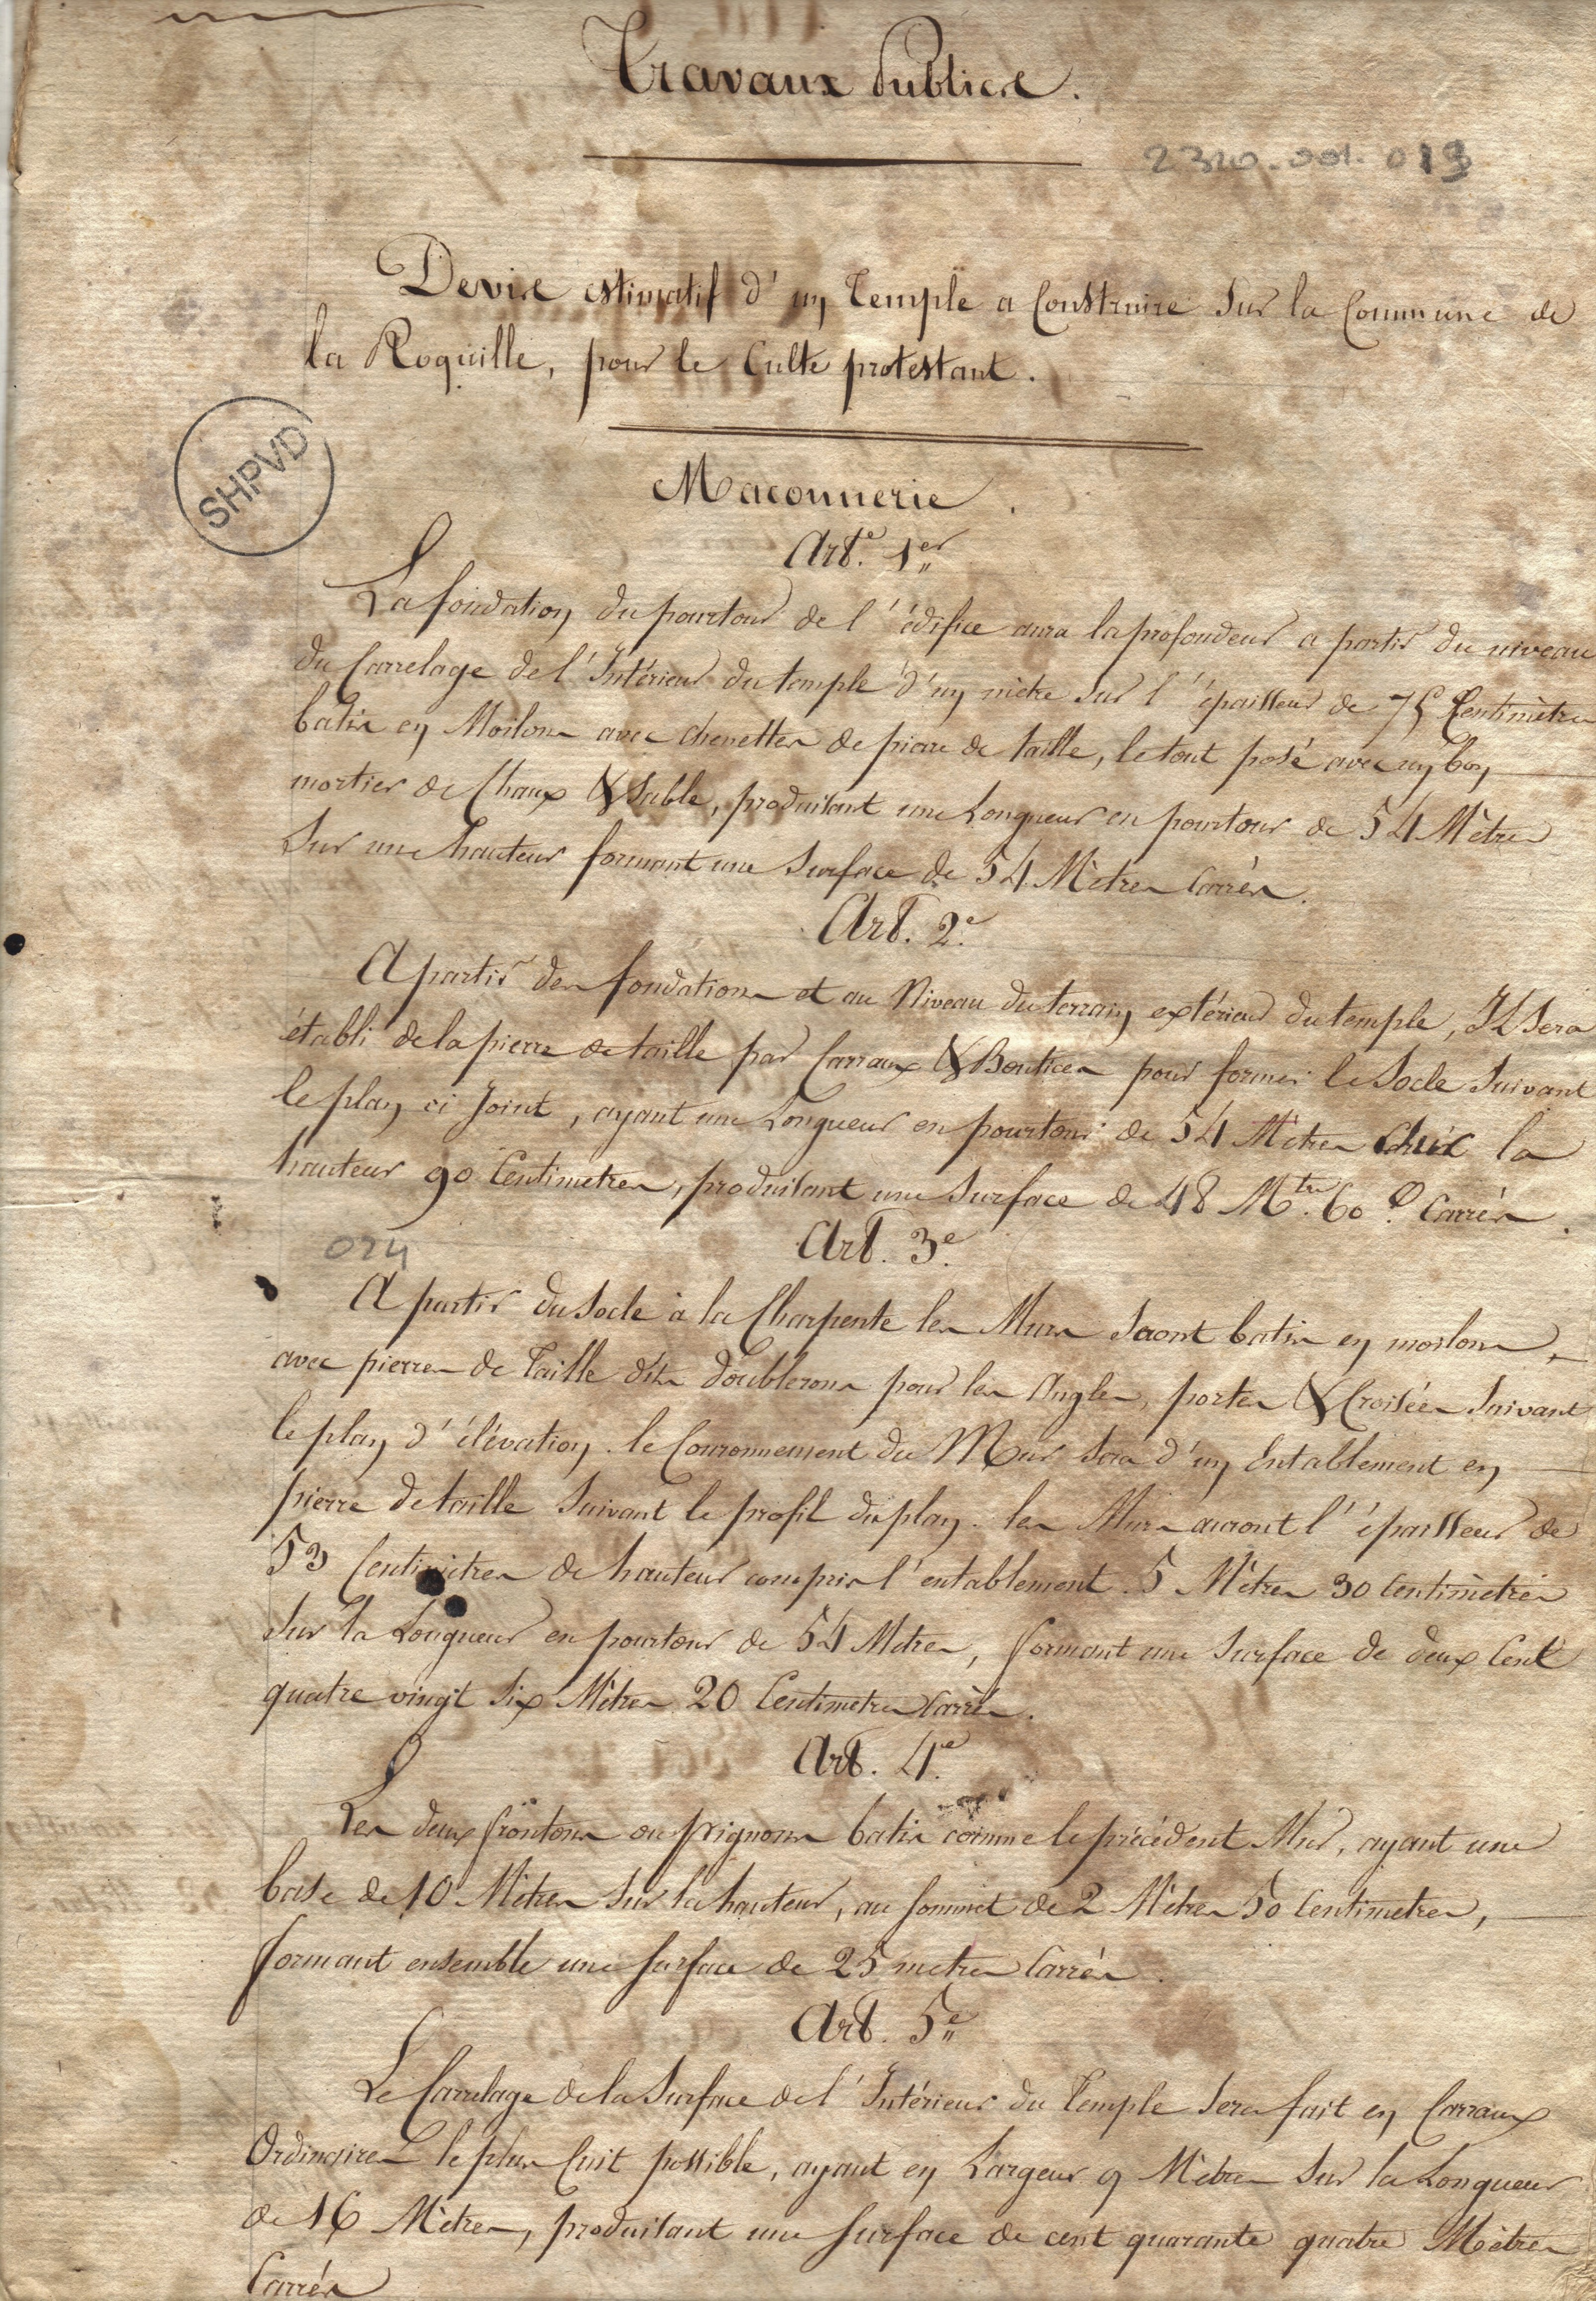 Travaux Publics.
2320-001-013
Devis estimatif d'un Temple a Construire Sur la Commune de
la Roquille, pour le Culte protestant.
SHPVD
Maconnerie.
Art.e 1er
La fondation du pourtour de l'édifice aura la profondeur a partir du niveau
du Carrelage de l'Intérieur du temple d'un mètre sur l'épaisseur de 75 Centimètres
batis en Moilons avec chenettes de piere de taille, le tout posé avec un bon
mortier de Chaux & Sable, produisant une Longueur en pourtour de 54 Mètres
Sur une hauteur formant une Surface de 54 Mètres Carrés.
Art. 2e.
A partir des fondations et au Niveau du terrain extérieur du temple, Il Sera
établi de la pierre de taille par Carraux & Boutices pour former le Socle Suivant
le plan ci Joint, ayant une Longueur en pourtour de 54 Mètres la
hauteur 90 Centimetres, produisant une Surface de 48 Mtrs. 60 c. Carrés.
024
Art. 3e.
A partir du Socle à la Charpente les Murs Seront batis en moilons,
avec pierres de Taille dits doublerons pour les Angles, portes & Croisées Suivant
le plan d'élévation. le Couronnement du Mur sera d'un Entablement en
pierre de taille Suivant le profil du plan. les Murs auront l'épaisseur de
53 Centimètres de hauteur compris l'entablement 5 Mètres 30 Centimètres
Sur la Longueur en pourtour de 54 Mètres, formant une Surface de deux Cent
quatre vingt Six Mètres 20 Centimetres Carrés.
Art. 4e.
Les deux frontons ou pignons batis comme le précédent Mur, ayant une
base de 10 Mètres Sur la hauteur, au Sommet de 2 Mètres 50 Centimetres,
formant ensemble une Surface de 25 metres Carrés.
Art. 5e
Le Carrelage de la Surface de l'Intérieur du Temple Sera fait en Carraux
Ordinaires le plus Cuit possible, ayant en Largeur 9 Mètres Sur la Longueur
de 16 Mètres, produisant une Surface de cent quarante quatre Mètres
Carrés